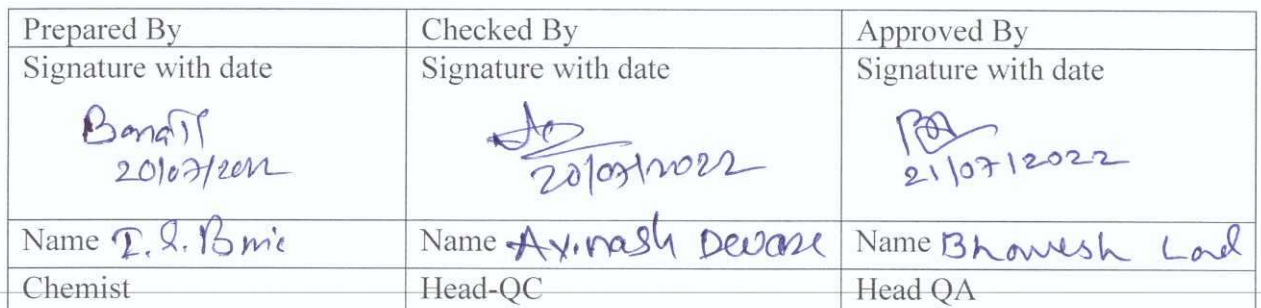 Prepared By Checked By Approved By
Signature with date Signature with date Signature with date
20/07/2022 20/07/2022 21/07/2022
Name Name Avinash Name Bhavesh Lad
Chemist Head-QC Head QA